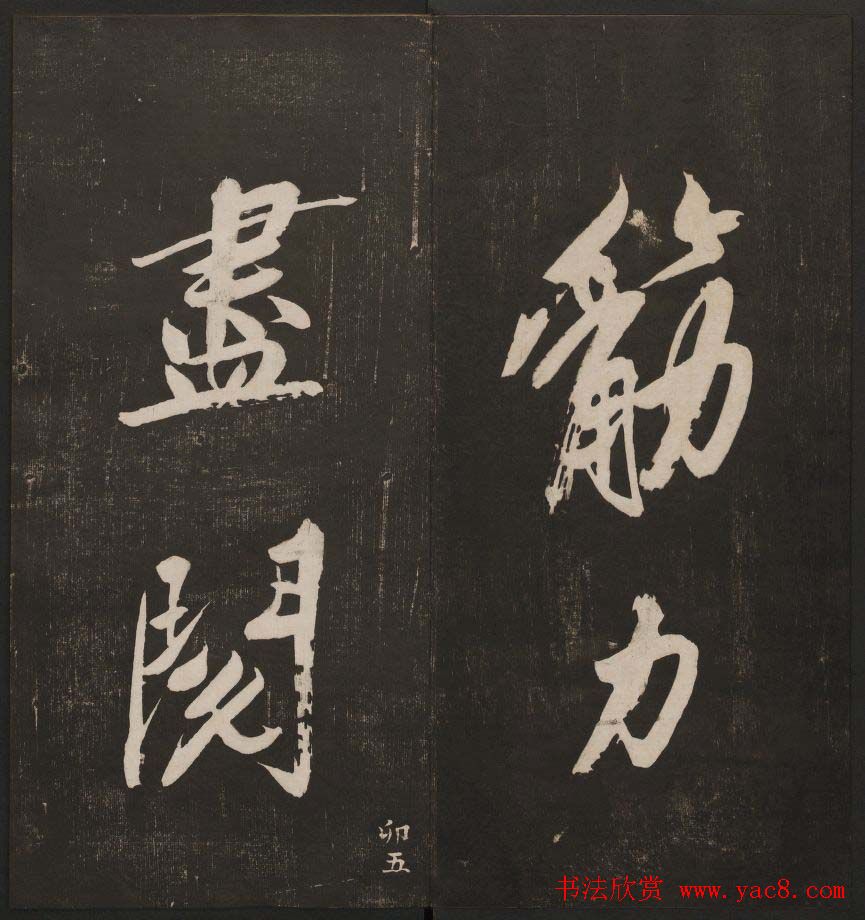 筋力
盡閱
卯五
书法欣赏 www.yac8.com